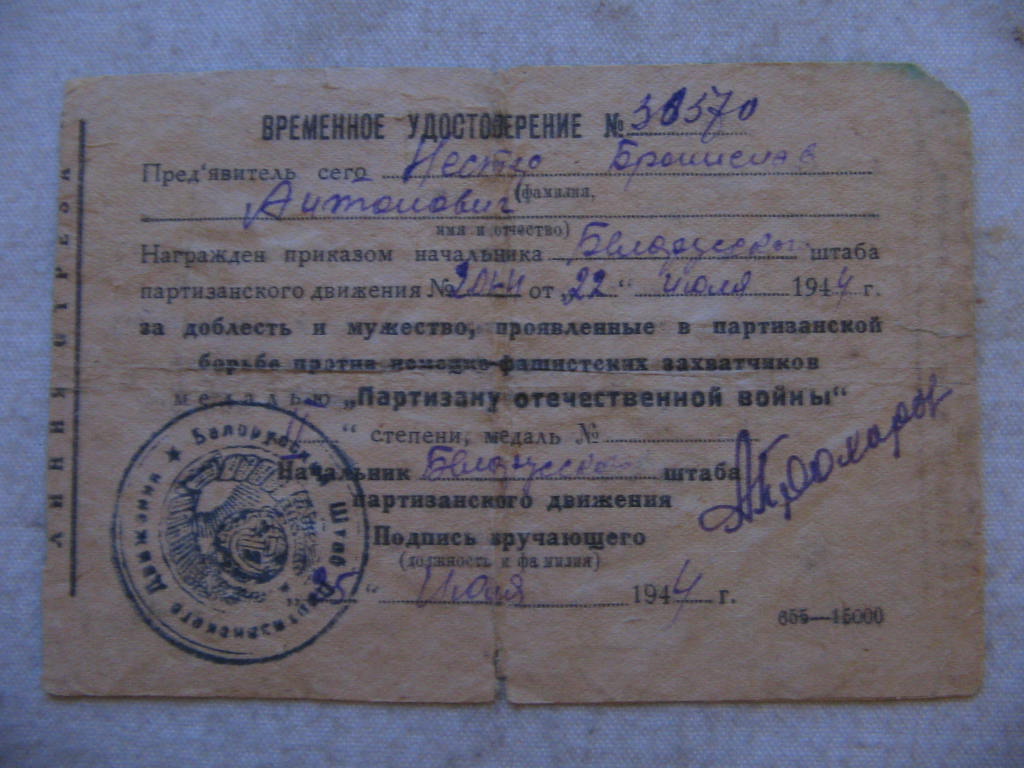 ЛИНИЯ ОТРЕЗА
ВРЕМЕННОЕ УДОСТОВЕРЕНИЕ №
Пред'явитель сего Нестер Бронислав
(фамилия,
Антонович
имя и отчество)
Награжден приказом начальника Белорусского штаба
партизанского движения № от „22“ июля 1944 г.
за доблесть и мужество, проявленные в партизанской
борьбе против немецко-фашистских захватчиков
медалью „Партизану отечественной войны“
„II“ степени, медаль №
Начальник Белорусского штаба
партизанского движения
Подпись вручающего
(должность и фамилия)
„25“ Июля 1944 г.
655—15000
★ Белорусский Штаб Партизанского Движения